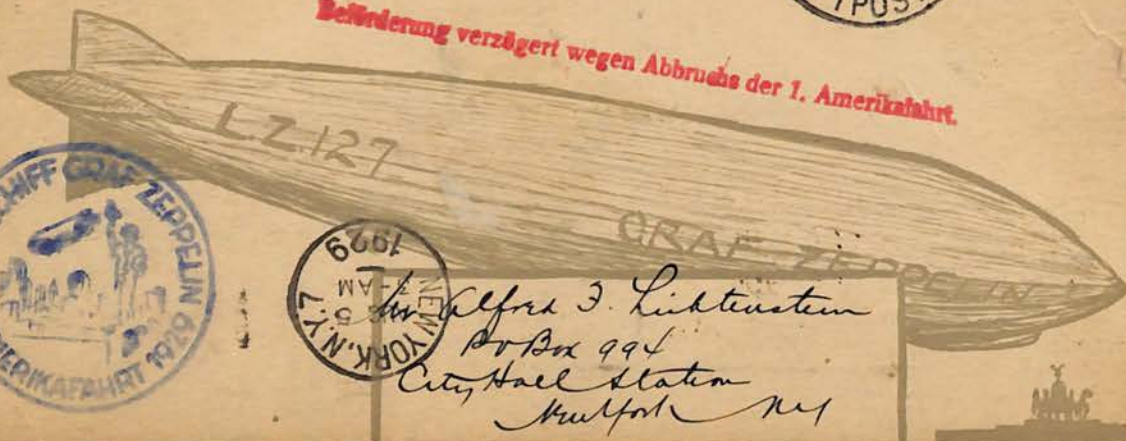 TPOST
Beförderung verzögert wegen Abbruchs der 1. Amerikafahrt.
LZ 127
GRAF ZEPPELIN
CHIFF GRAF ZEPPELIN
ERIKAFAHRT 1929
NEW YORK, N.Y. 7
5 -AM
1929
Mr Alfred F. Lichtenstein
PO Box 994
City Hall Station
New York NY